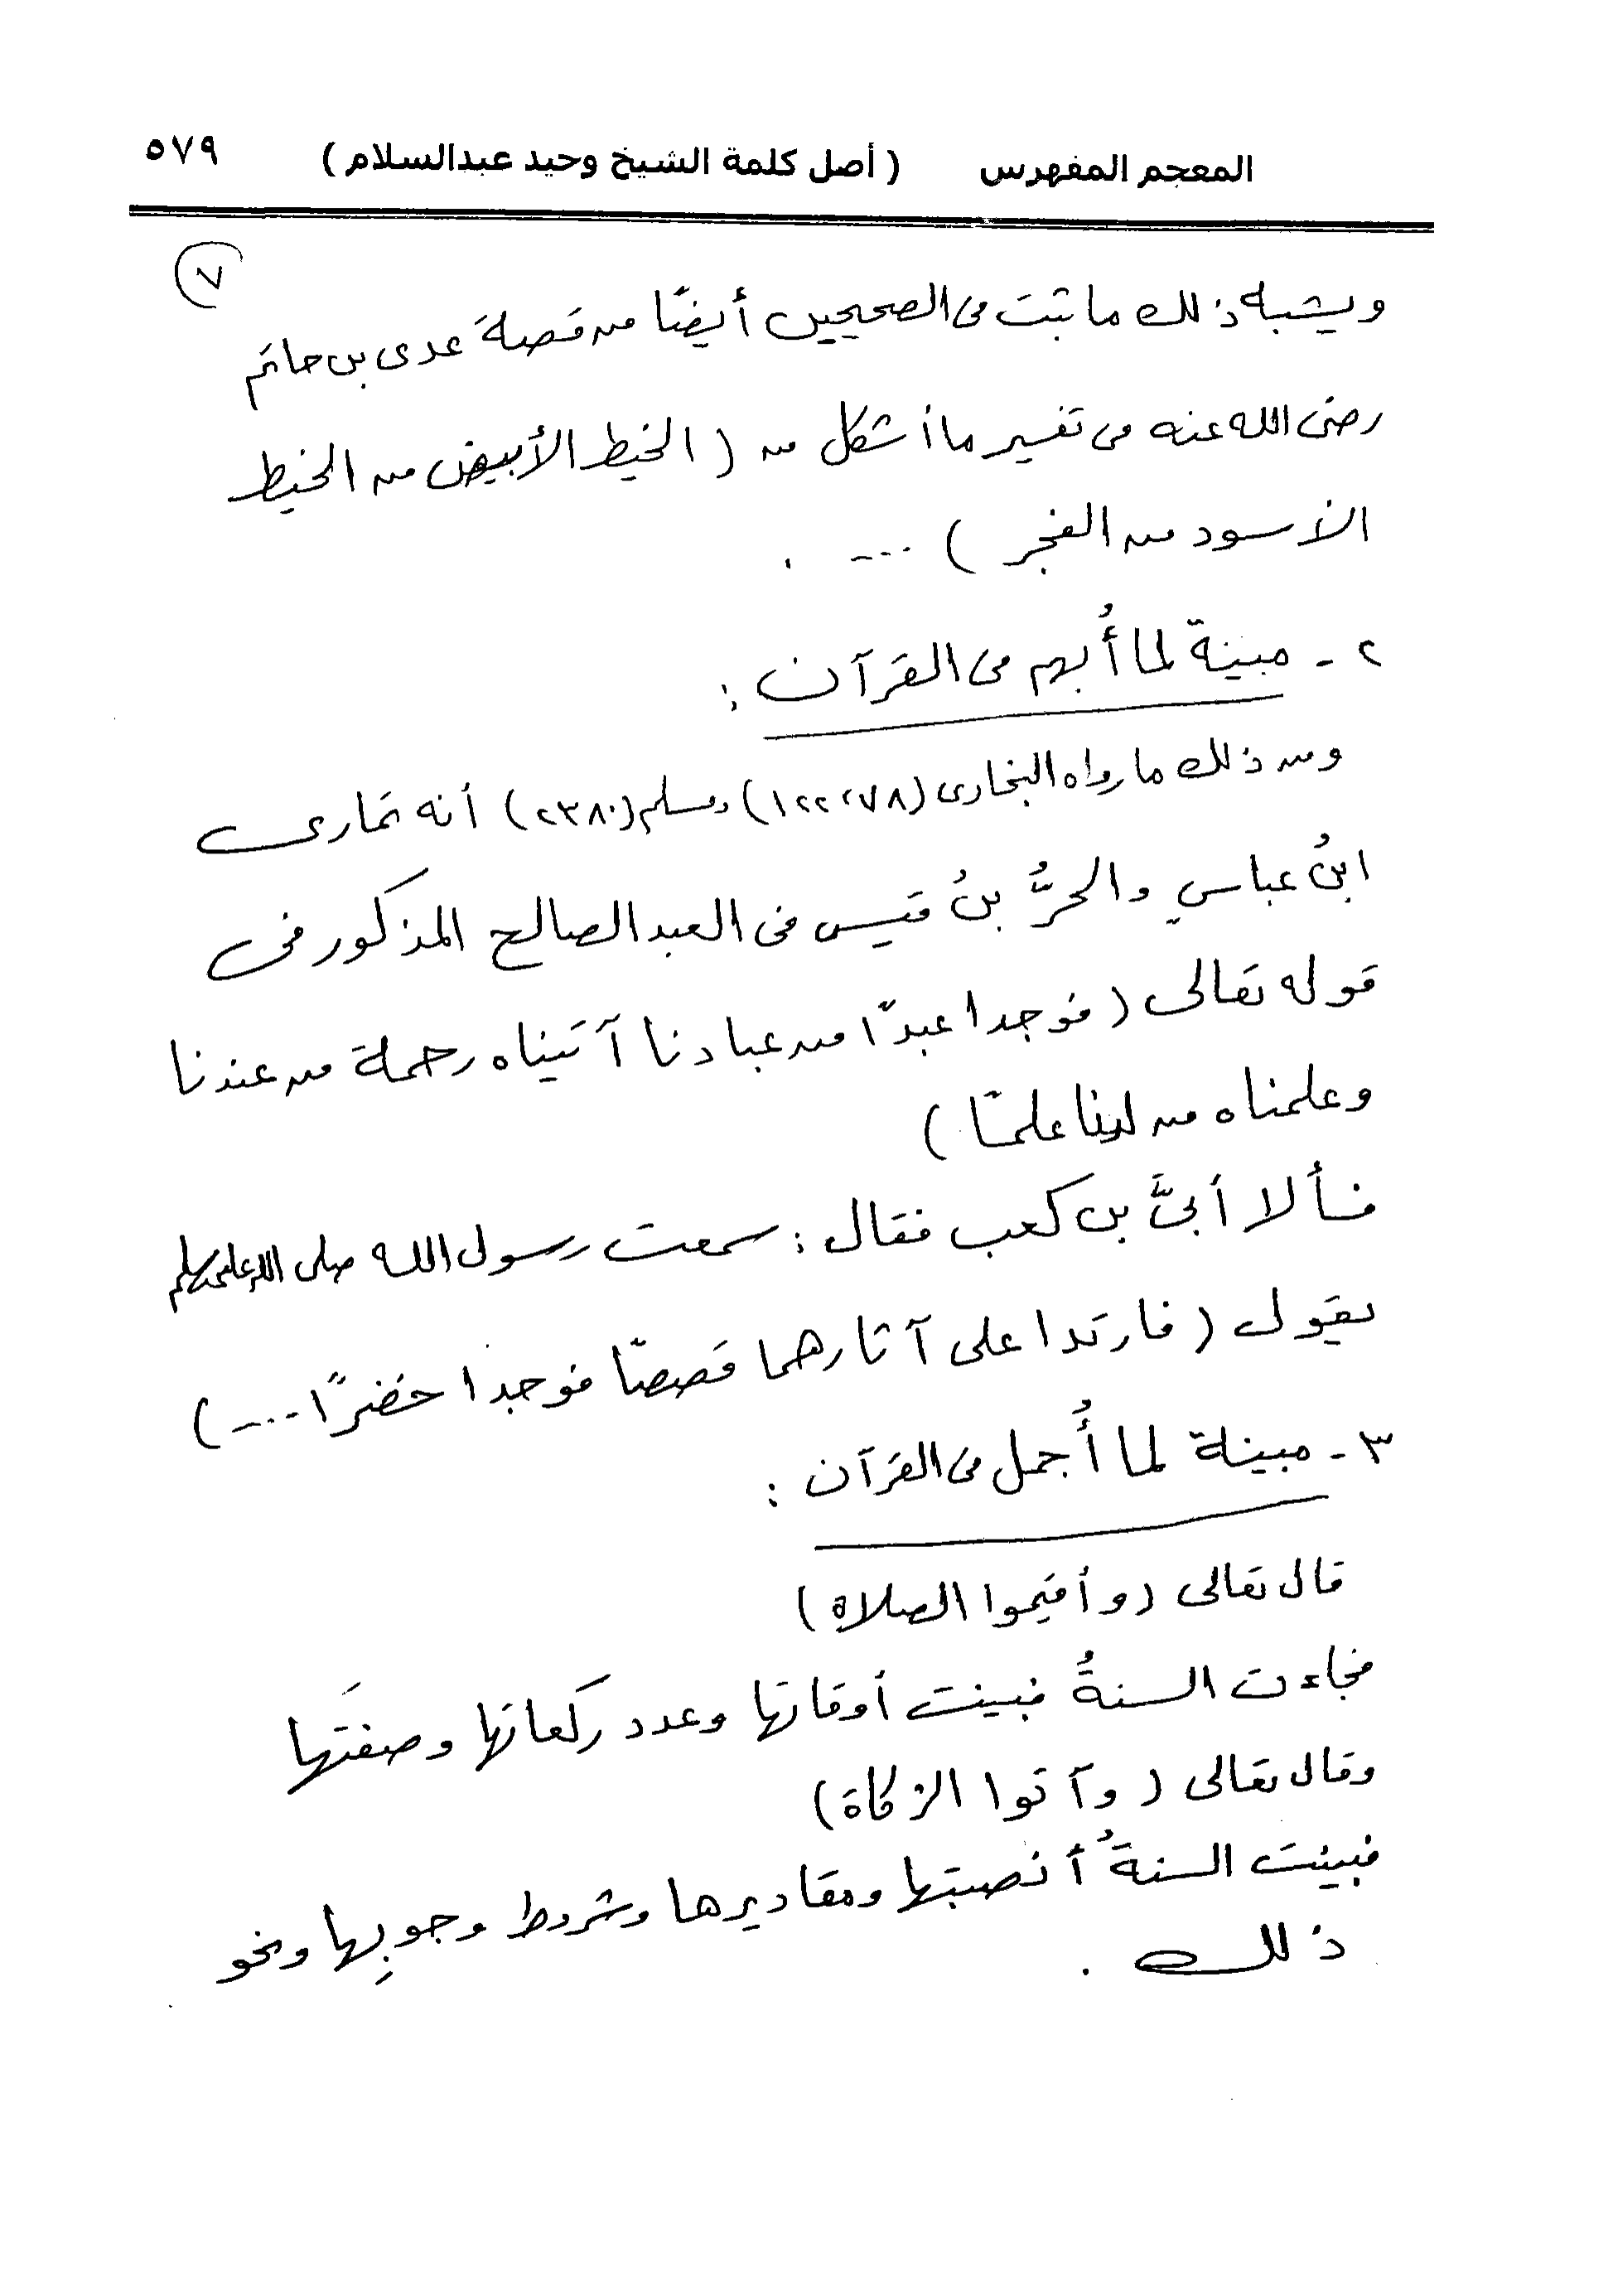 المعجم المفهرس ( أصل كلمة الشيخ وحيد عبدالسلام ) ٥٧٩
٧
ويشبه ذلك ما ثبت فى الصحيحين أيضًا من قصة عدى بن حاتم
رضى الله عنه فى تفسير ما أشكل من ( الخيط الأبيض من الخيط
الأسود من الفجر ) .... .
٢ - مبينة لما أُبهم فى القرآن :
ومن ذلك ما رواه البخارى (٧٨، ١٢٢) ومسلم (٢٣٨٠) أنه تمارى
ابنُ عباسٍ والحرُّ بنُ قيس فى العبد الصالح المذكور فى
قوله تعالى ( فوجدا عبدًا من عبادنا آتيناه رحمة من عندنا
وعلمناه من لدنا علمًا )
فسألا أبىَّ بن كعب فقال : سمعت رسول الله صلى الله عليه وسلم
يقول ( فارتدا على آثارهما قصصًا فوجدا خضرًا .... )
٣ - مبينة لما أُجمل فى القرآن :
قال تعالى ( وأقيموا الصلاة )
فجاءت السنةُ فبينت أوقاتها وعدد ركعاتها وصفتَها
وقال تعالى ( وآتوا الزكاة )
فبينت السنةُ أنصبتها ومقاديرها وشروط وجوبِها ونحو
ذلك .